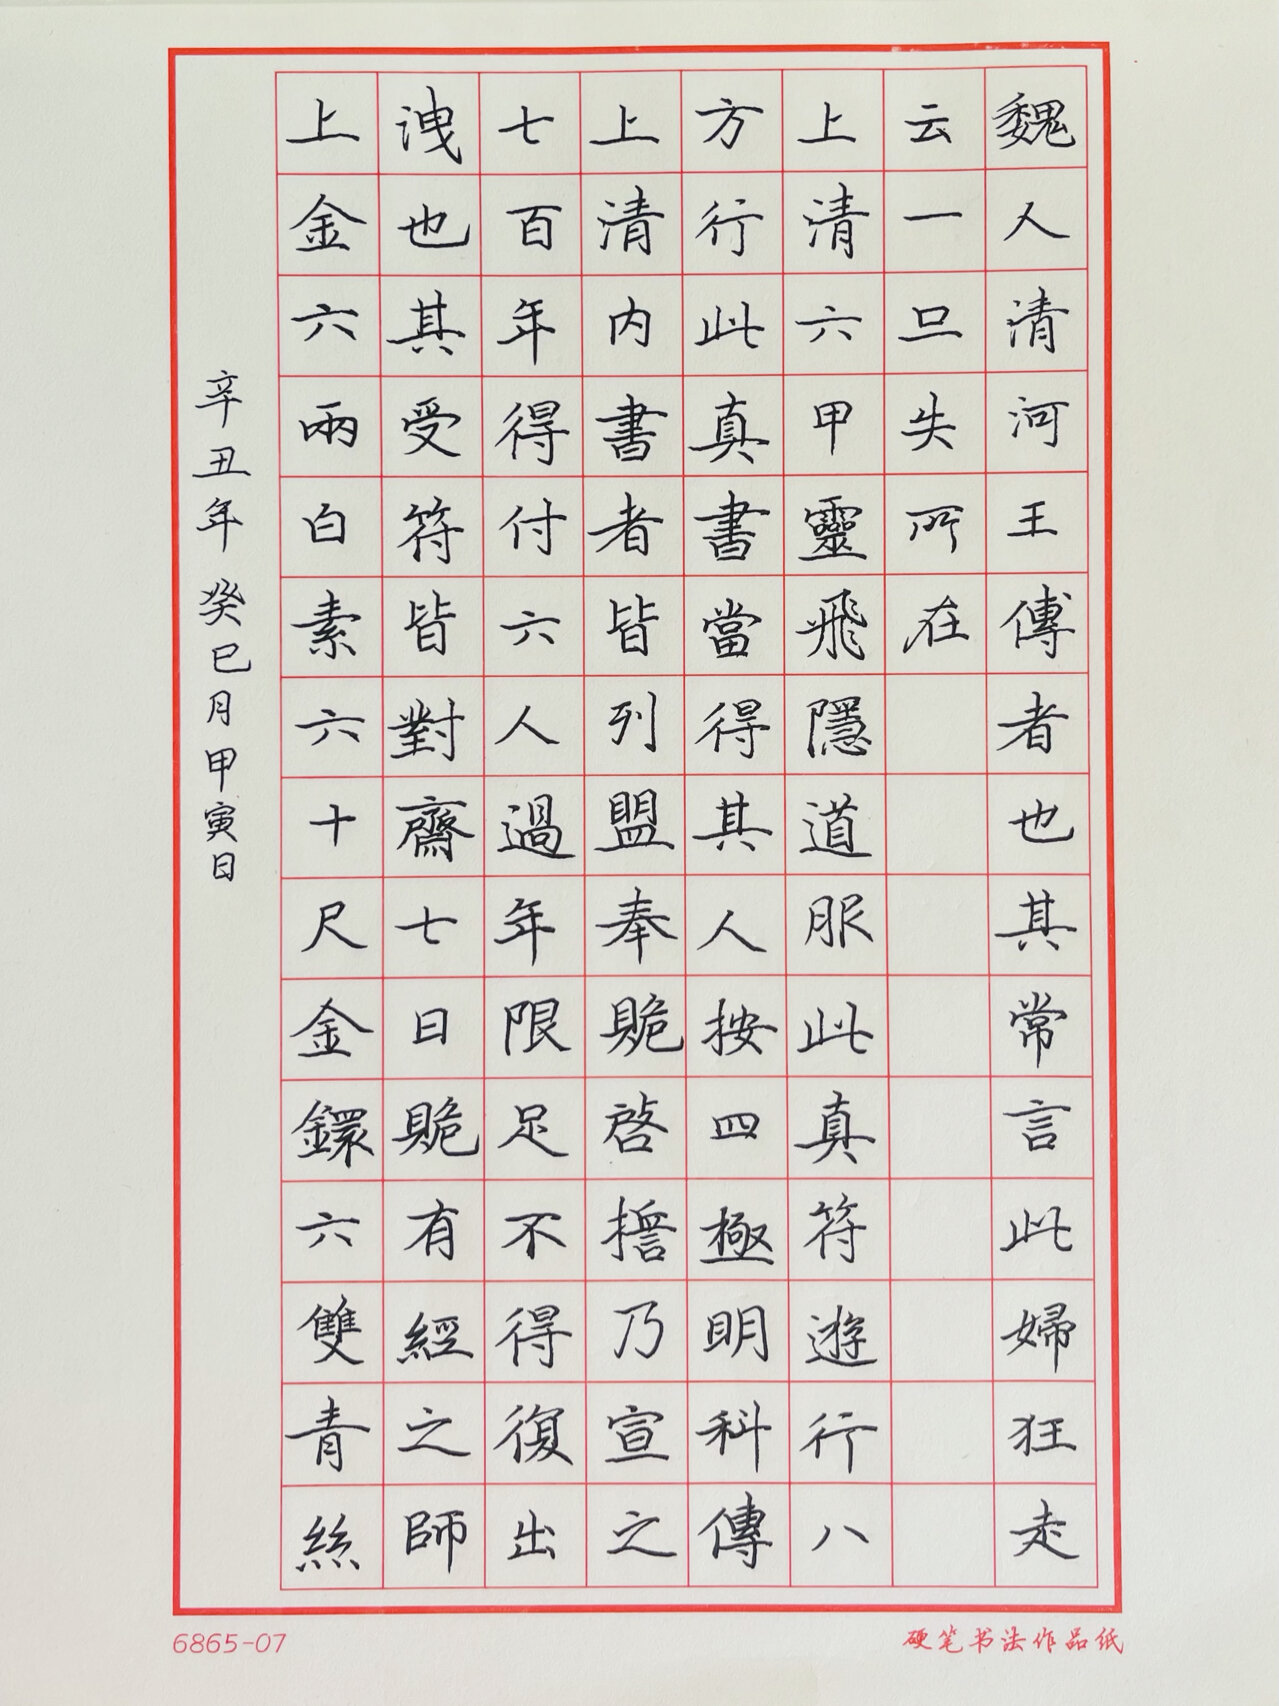 魏人清河王傅者也其常言此婦狂走
云一旦失所在
上清六甲靈飛隱道服此真符遊行八
方行此真書當得其人按四極明科傳
上清内書者皆列盟奉贶啓擔乃宣之
七百年得付六人過年限足不得復出
洩也其受符皆對齋七日贶有經之師
上金六兩白素六十尺金鐶六雙青絲
辛丑年 癸巳月甲寅日
6865-07
硬笔书法作品纸